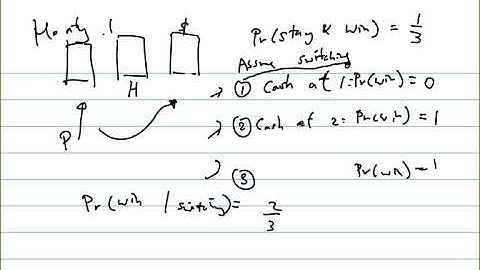 Monty : $
H
P
Pr(stay & win) = 1/3
Assume switching
① Cash at 1: Pr(win) = 0
② Cash at 2: Pr(win) = 1
③ Pr(win) = 1
Pr(win / switching) = 2/3